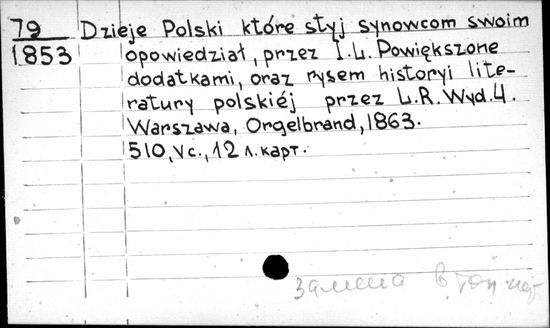 79 Dzieje Polski które styj synowcom swoim
1853 opowiedział, przez I.L. Powiększone
dodatkami, oraz rysem historyi lite-
ratury polskiéj przez L.R. Wyd.4.
Warszawa, Orgelbrand, 1863.
510, Vc., 12 л.карт.
замена в